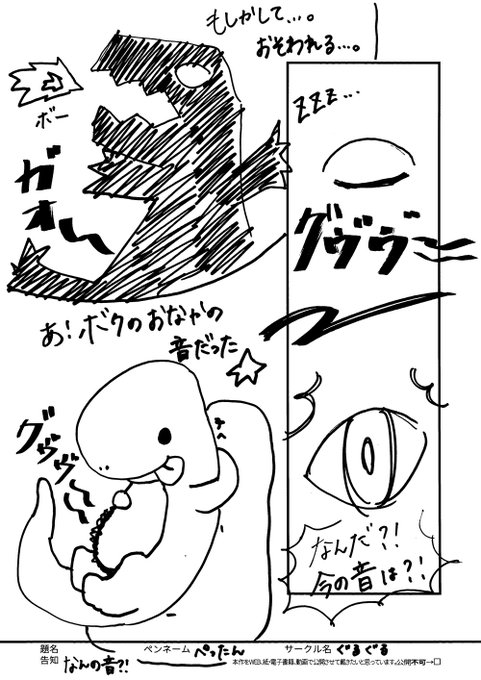 ZZZ…
グヴヴー
なんだ?!
今の音は?!
もしかして…。
おそわれる…。
ボー
ガオー
あ!ボクのおなかの
音だった
グゥゥゥ
題名
告知
なんの音?!
ペンネーム ぺったん
サークル名 ぐるぐる
本作をWEB、紙・電子書籍、動画で公開させて戴きたいと思っています。公開不可→□